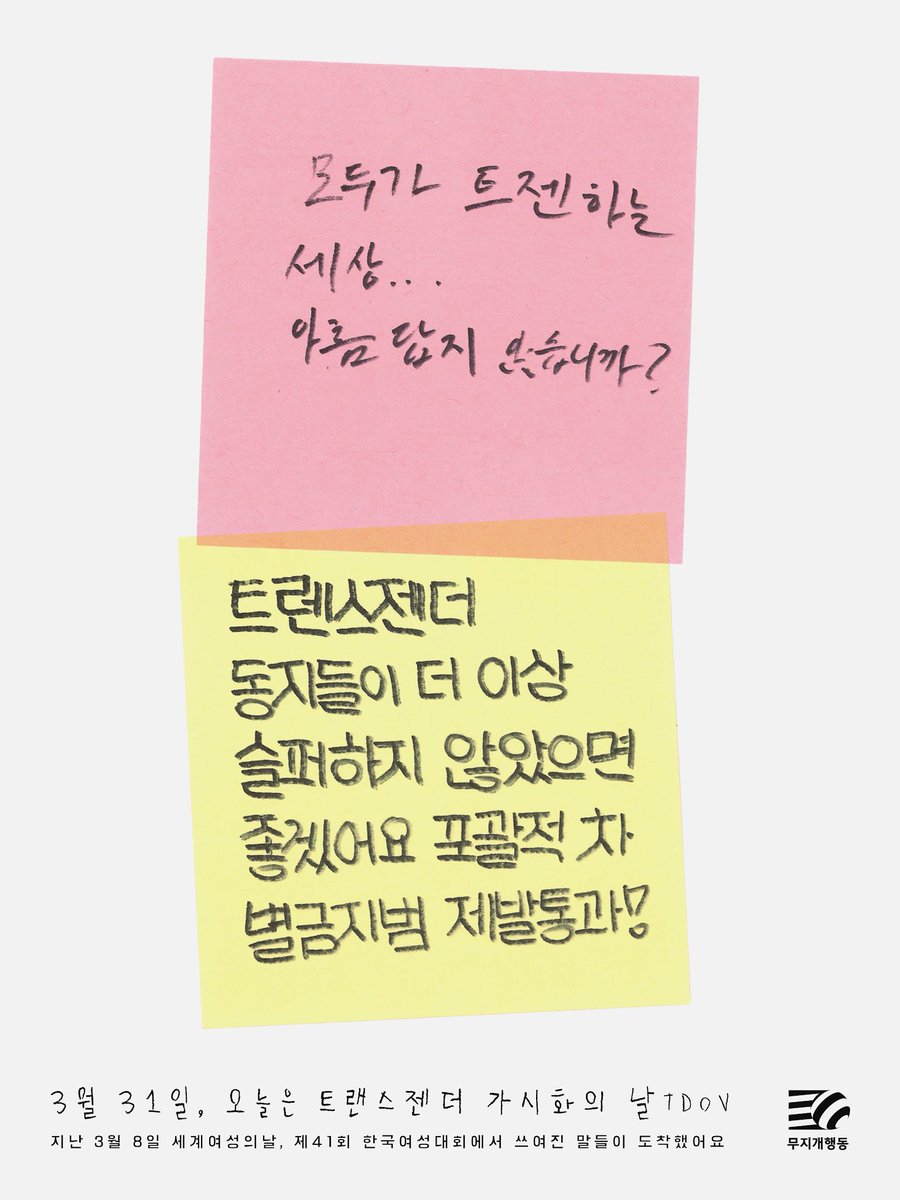 모두가 트젠하는
세상...
아름답지 않습니까?
트렌스젠더
동지들이 더 이상
슬퍼하지 않았으면
좋겠어요 포괄적 차
별금지법 제발통과!
3월 31일, 오늘은 트랜스젠더 가시화의 날 TDOV
지난 3월 8일 세계여성의날, 제41회 한국여성대회에서 쓰여진 말들이 도착했어요
무지개행동